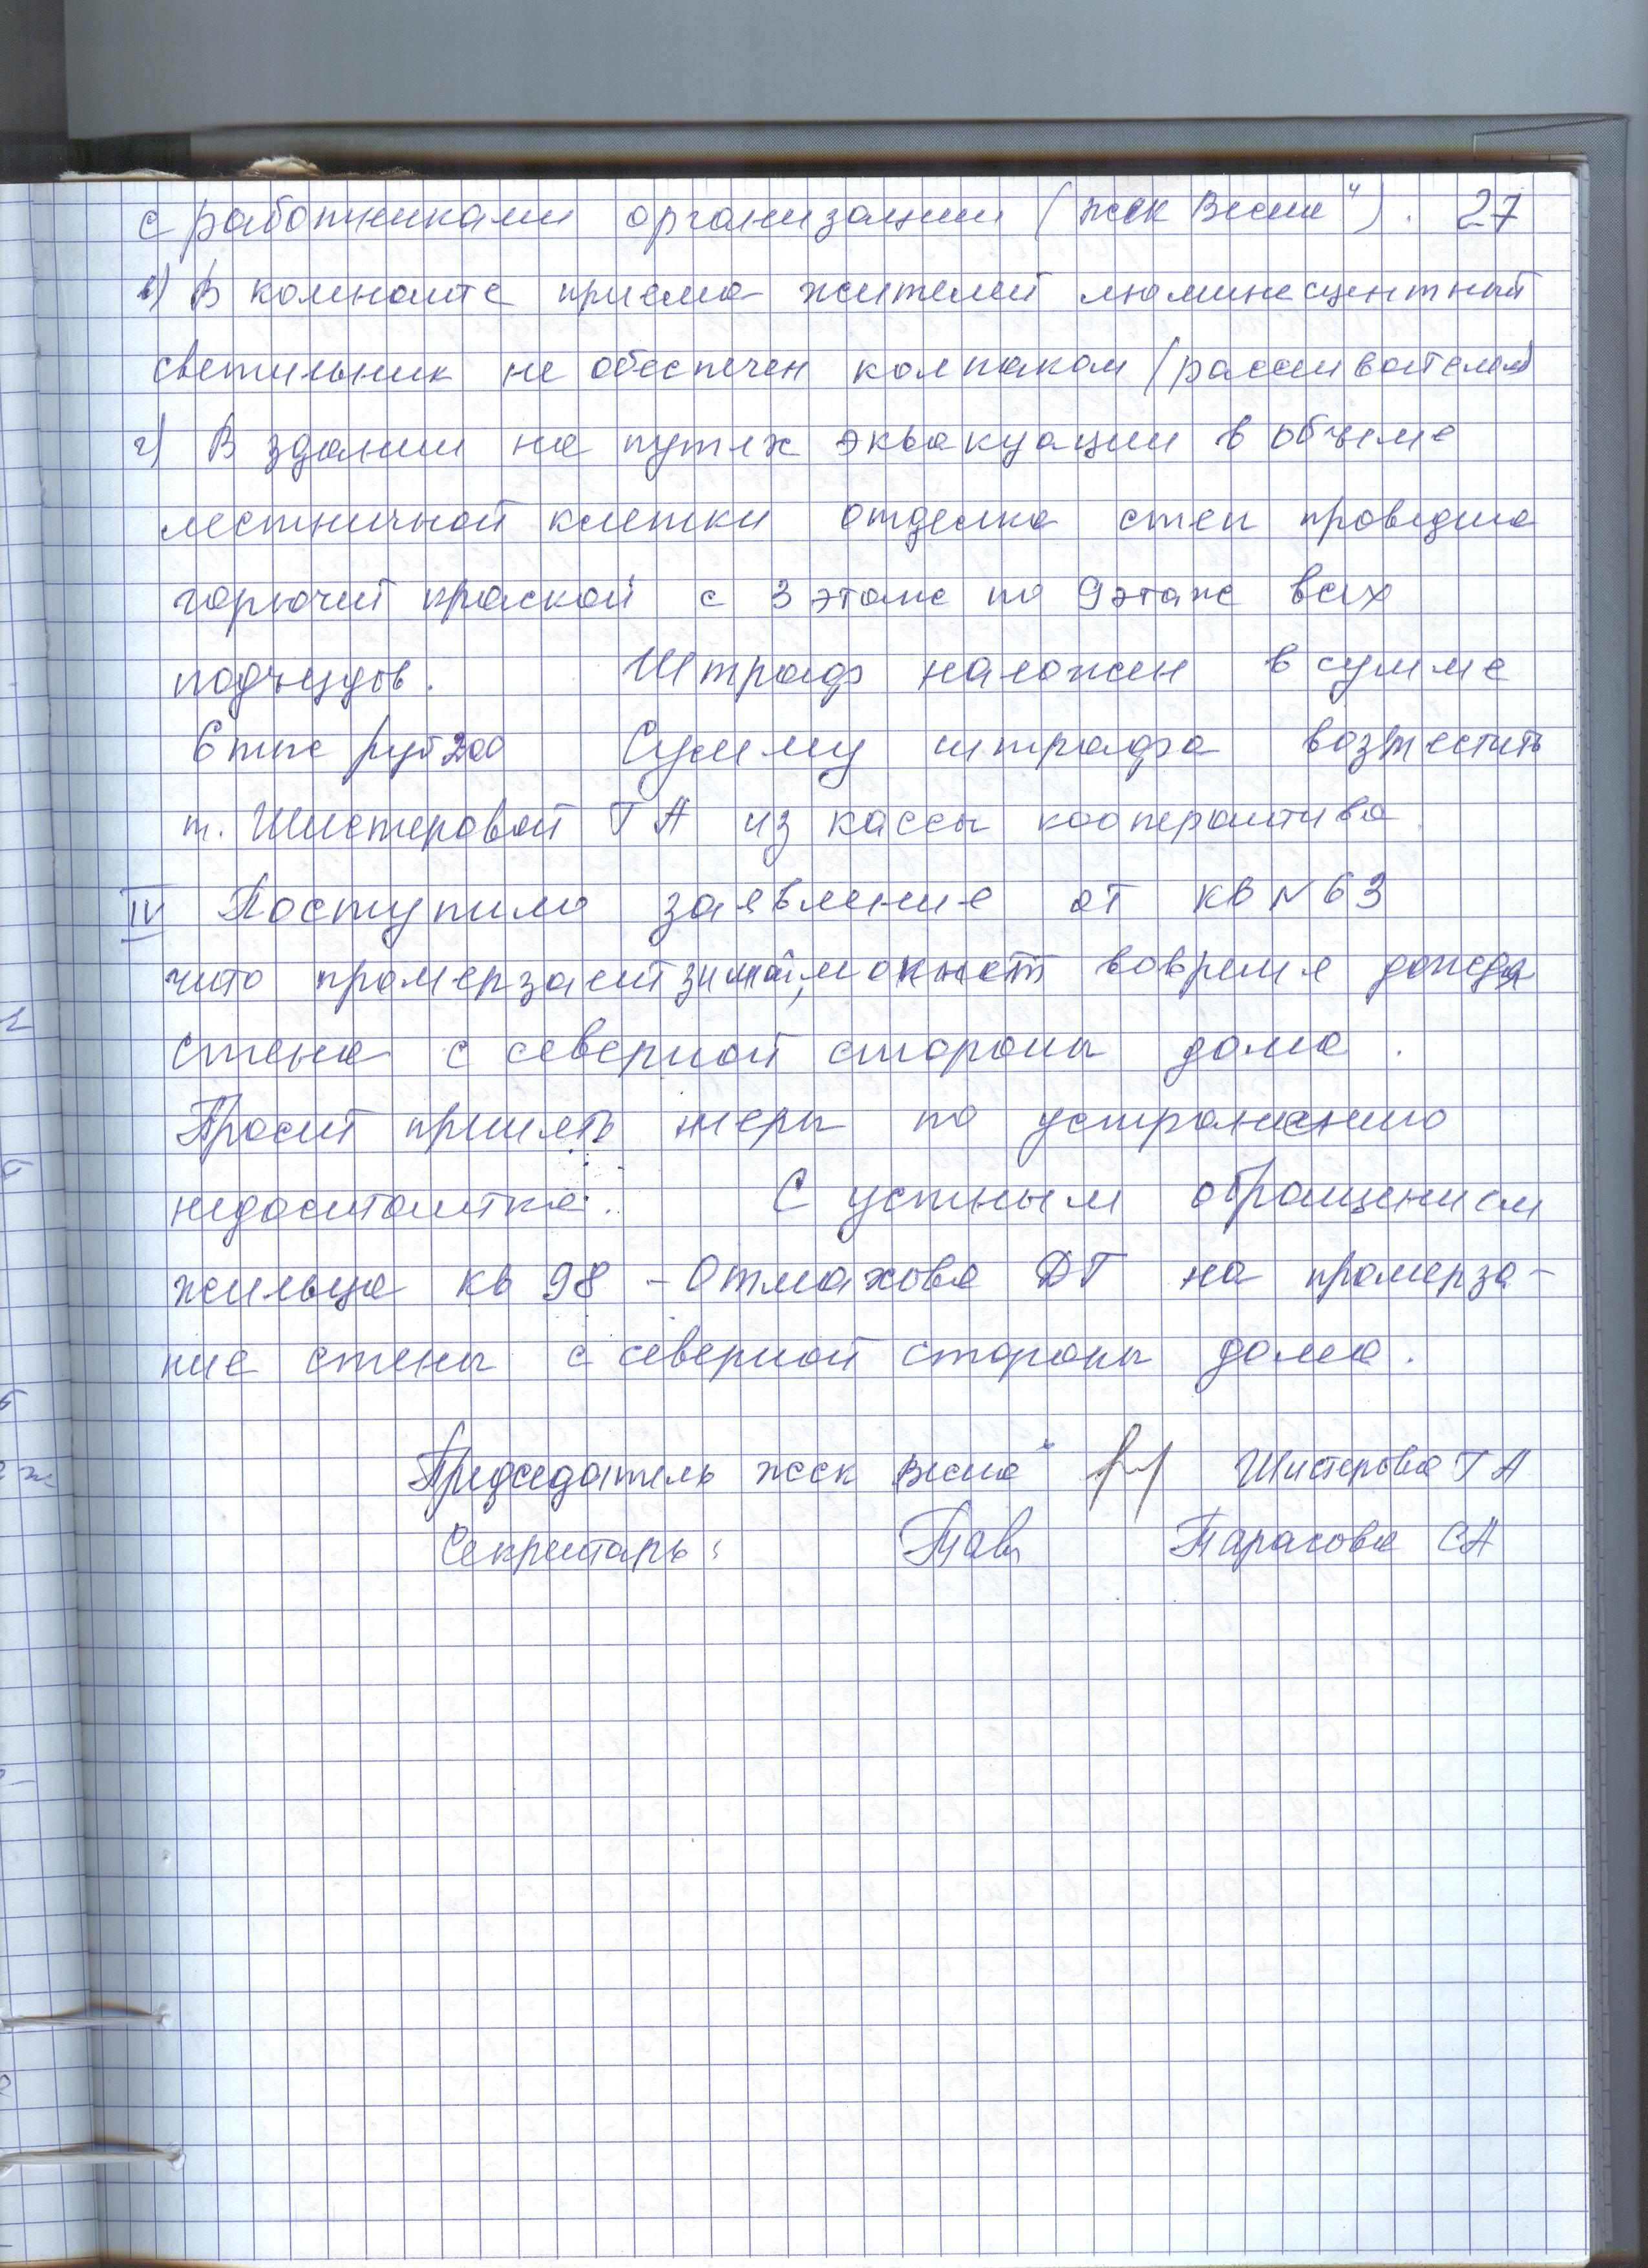 с работниками организации (жск Весна"). 27
в) В комнате приема жителей люминесцентный
светильник не обеспечен колпаком (рассеивателем)
г) В здании на путях эквакуации в объеме
лестничной клетки отделка стен проведена
горючей краской с 3 этаже по 9 этаже всех
подъездов. Штраф наложен в сумме
6 тыс руб 200 Сумму штрафа возместить
т. Шистеровой Г А из кассы кооператива.
IV Поступило заявление от кв N 63
что промерзает зимой, мокнет вовремя дождя
стена с северной стороны дома.
Просит принять меры по устранению
недостатка. С устным обращением
жильца кв 98 - Отмахова ДГ на промерза-
ние стены с северной стороны дома.
Председатель жск Весна" Шистерова Г А
Секретарь: Тав Тарасова СА